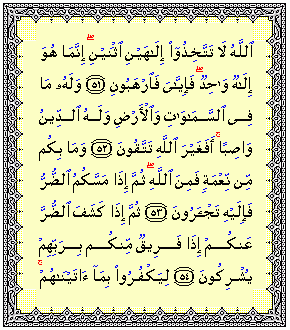 ٱللَّهُ لَا تَتَّخِذُوٓا۟ إِلَـٰهَيْنِ ٱثْنَيْنِ ۖ إِنَّمَا هُوَ
إِلَـٰهٌ وَٰحِدٌ ۖ فَإِيَّـٰىَ فَٱرْهَبُونِ ٥١ وَلَهُۥ مَا
فِى ٱلسَّمَـٰوَٰتِ وَٱلْأَرْضِ وَلَهُ ٱلدِّينُ
وَاصِبًا ۚ أَفَغَيْرَ ٱللَّهِ تَتَّقُونَ ٥٢ وَمَا بِكُم
مِّن نِّعْمَةٍ فَمِنَ ٱللَّهِ ۖ ثُمَّ إِذَا مَسَّكُمُ ٱلضُّرُّ
فَإِلَيْهِ تَجْـَٔرُونَ ٥٣ ثُمَّ إِذَا كَشَفَ ٱلضُّرَّ
عَنكُمْ إِذَا فَرِيقٌ مِّنكُم بِرَبِّهِمْ
يُشْرِكُونَ ٥٤ لِيَكْفُرُوا۟ بِمَآ ءَاتَيْنَـٰهُمْ ۚ